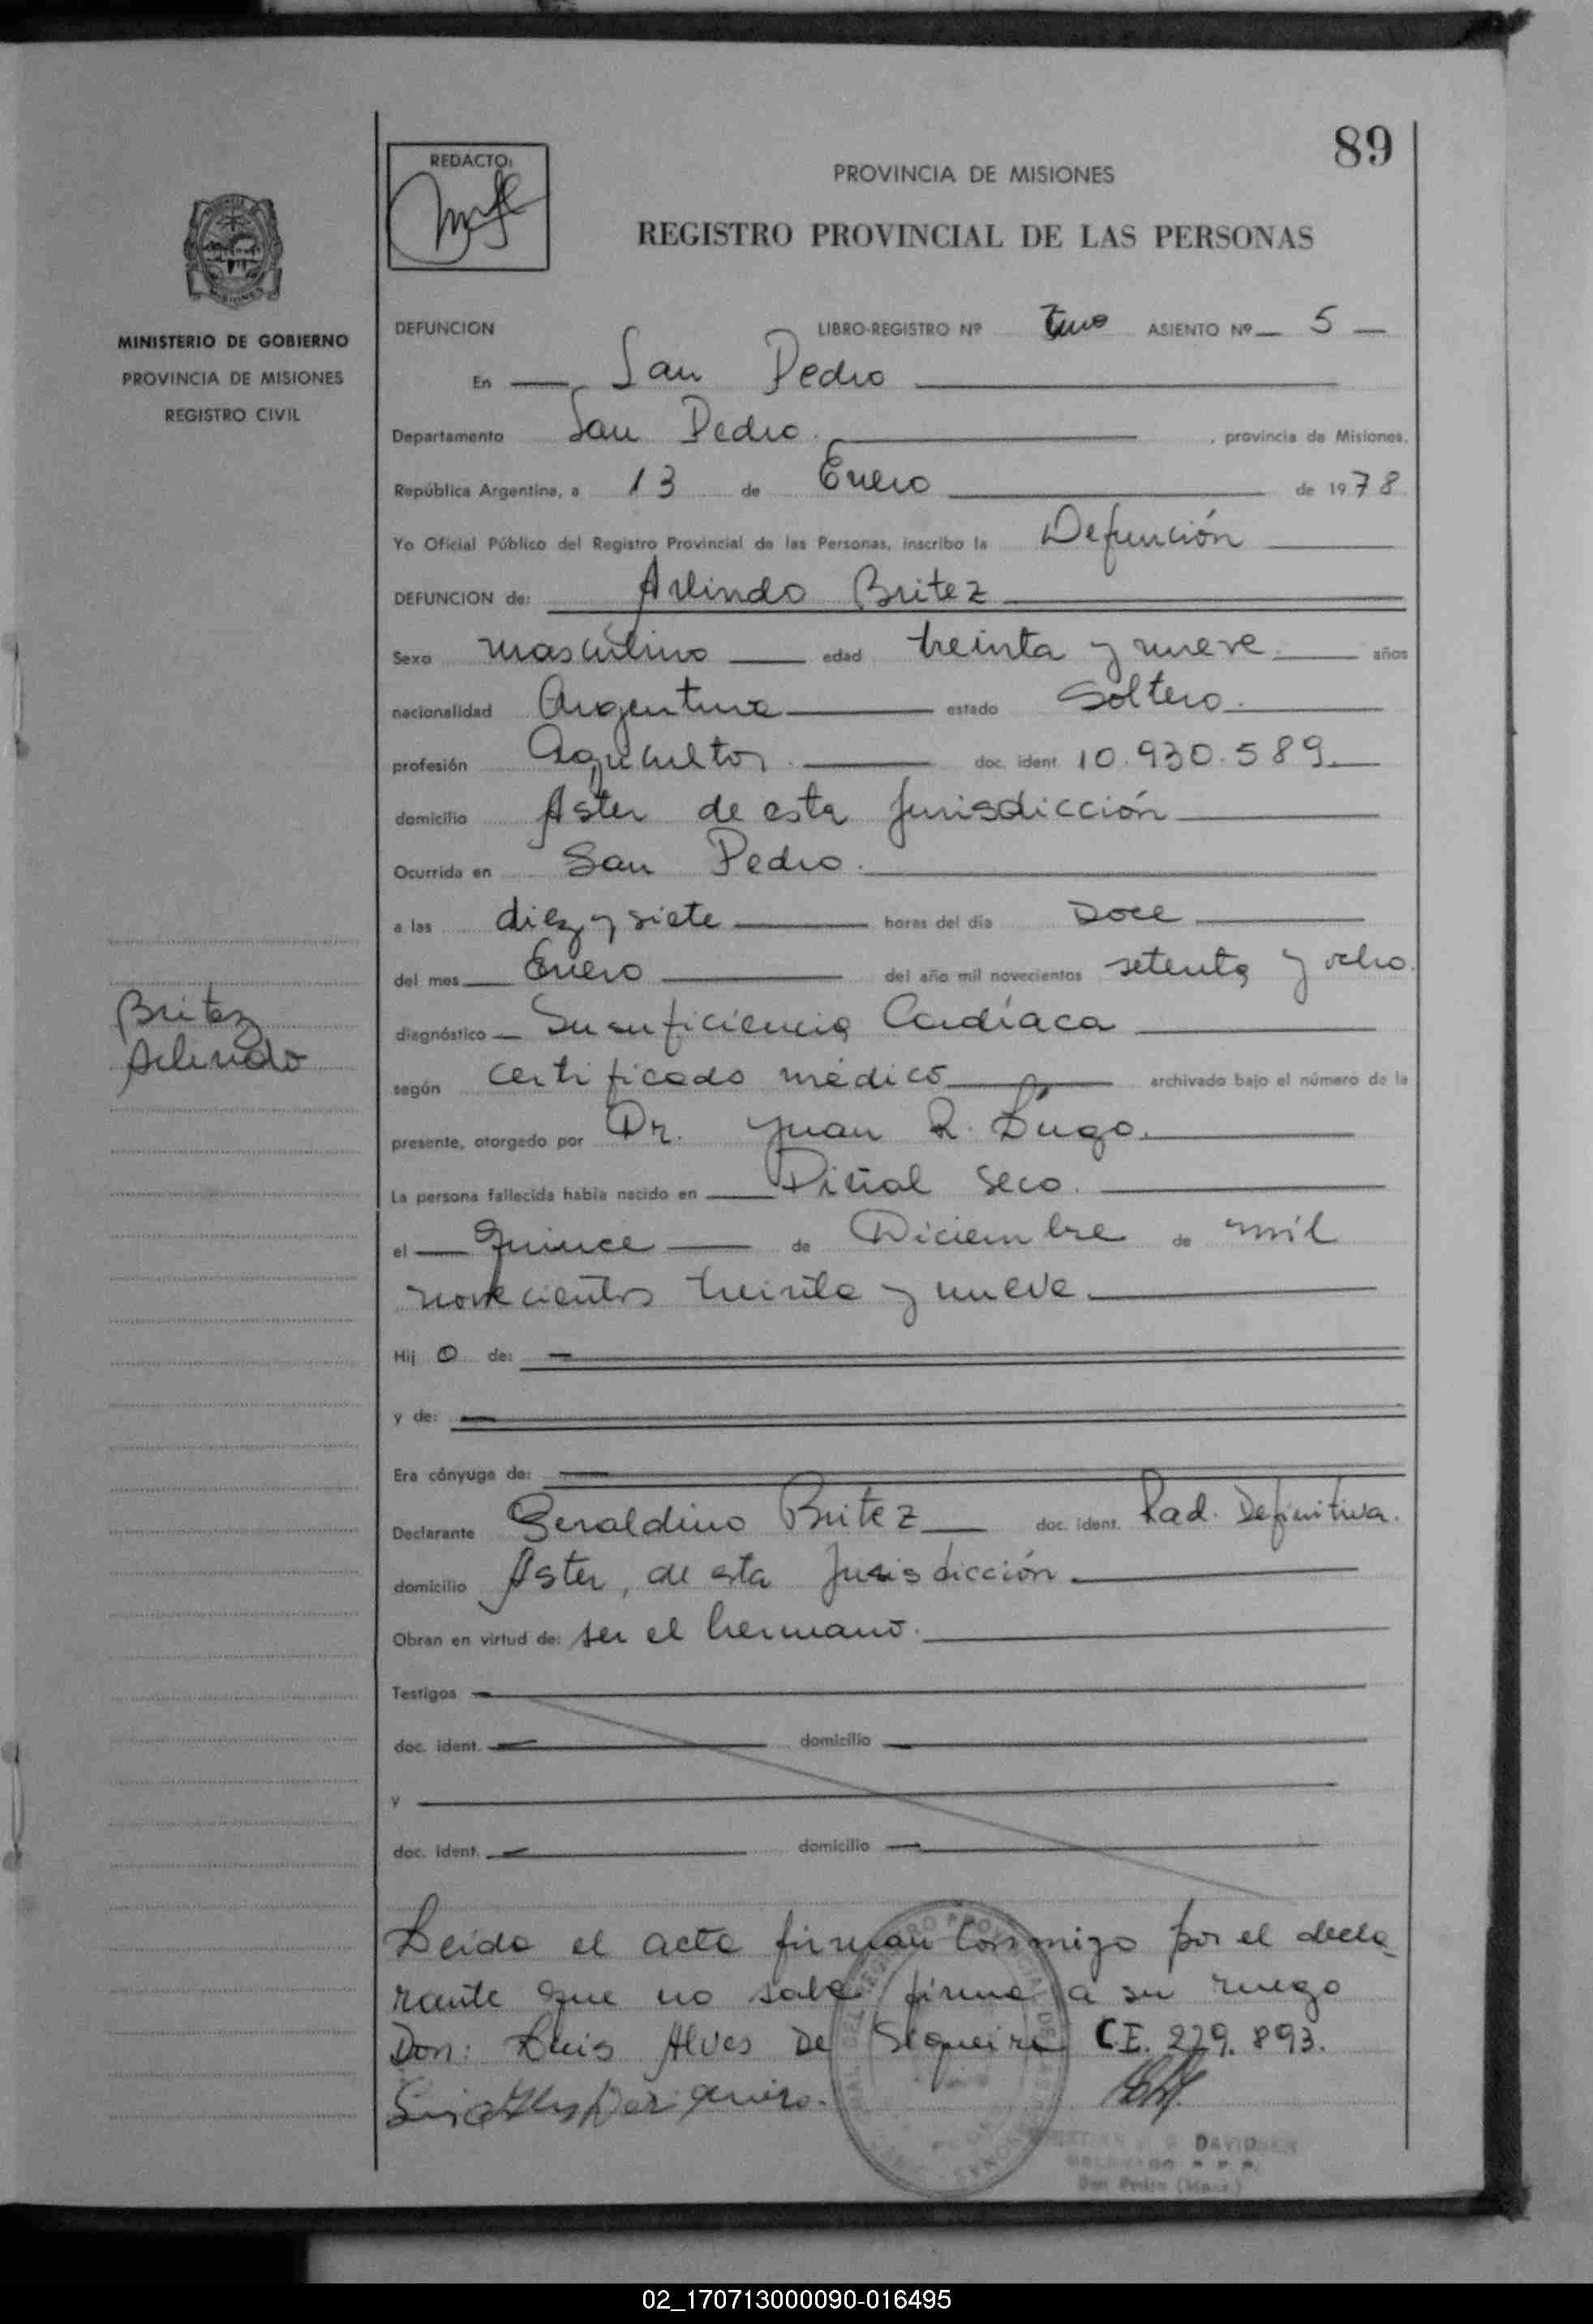 89
REDACTO:
PROVINCIA DE MISIONES
REGISTRO PROVINCIAL DE LAS PERSONAS
MISIONES
MINISTERIO DE GOBIERNO
PROVINCIA DE MISIONES
REGISTRO CIVIL
DEFUNCION LIBRO-REGISTRO Nº Uno ASIENTO Nº 5
En San Pedro
Departamento San Pedro. , provincia de Misiones.
República Argentina, a 13 de Enero de 1978
Yo Oficial Público del Registro Provincial de las Personas, inscribo la Defunción
DEFUNCION de: Arlindo Britez
Sexo masculino edad treinta y nueve años
nacionalidad Argentina estado Soltero.
profesión Agricultor. doc. ident. 10.930.589
domicilio Aster de esta Jurisdicción
Ocurrida en San Pedro.
a las diez y siete horas del día Doce
del mes Enero del año mil novecientos setenta y ocho.
Britez
Arlindo
diagnóstico Insuficiencia Cardíaca
según certificado médico archivado bajo el número de la
presente, otorgado por Dr. Juan R. Lugo.
La persona fallecida había nacido en Piñal Seco.
el Quince de Diciembre de mil
novecientos treinta y nueve
Hij o de:
y de:
Era cónyuge de:
Declarante Geraldino Britez doc. ident. Rad. Definitiva.
domicilio Aster, de esta Jurisdicción.
Obran en virtud de: ser el hermano.
Testigos
doc. ident. domicilio
y
doc. ident. domicilio
Leida el acta firman conmigo por el decla
rante que no sabe firmar a su ruego
Don: Luis Alves De Siqueira C.I. 229.893.
DAVIDSEN
San Pedro (Mnes.)
02_170713000090-016495